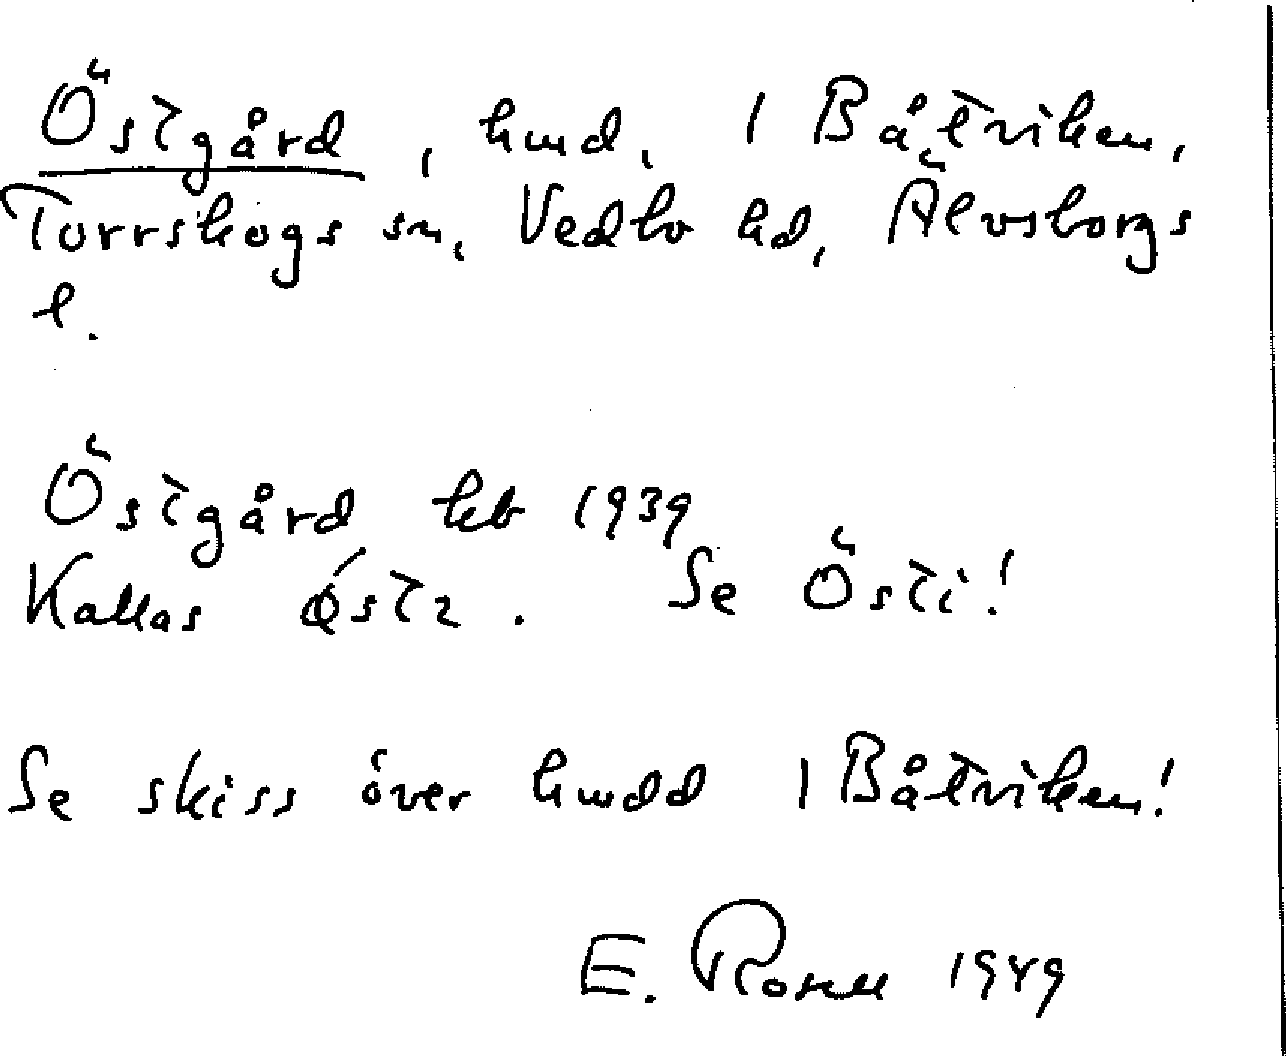 Östgård, hmd, 1 Båtviken,
Torrskogs sn, Vedbo hd, Älvsborgs
l.
Östgård kb 1939
Kallas ǿstɩ. Se Östi!
Se skiss över hmdd 1 Båtviken!
E. Rosell 1949